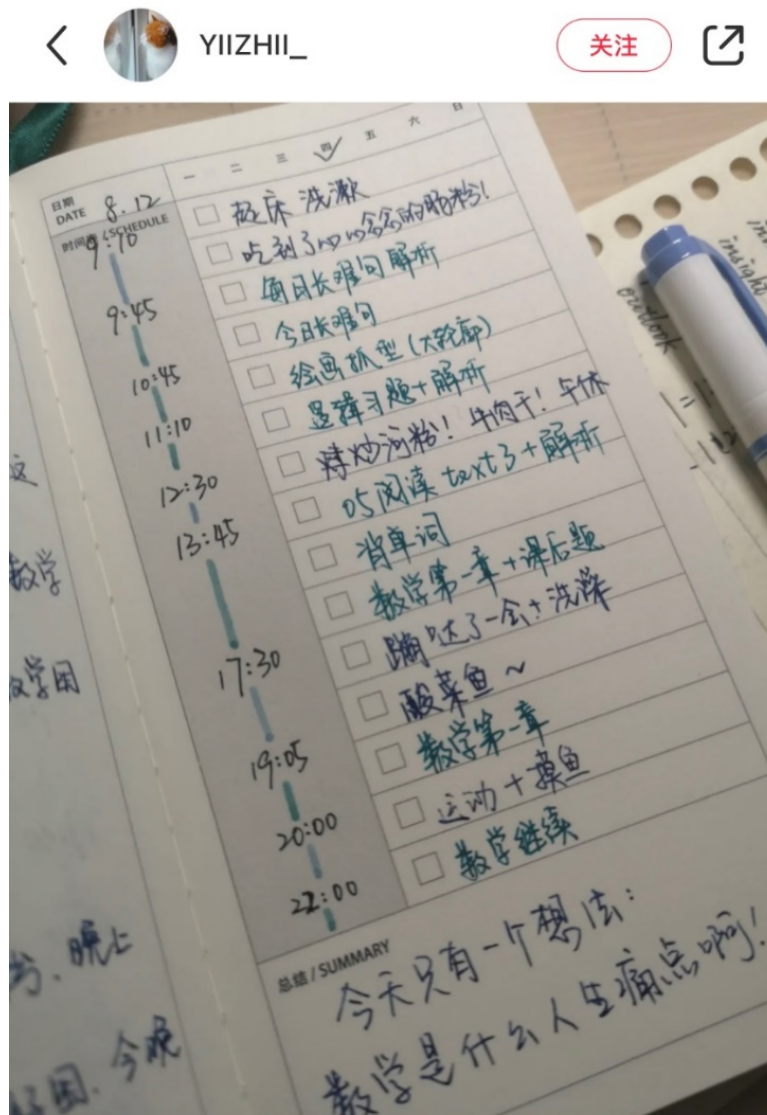 YIIZHII_
关注
一 二 三 四 五 六 日
日期
DATE 8.12
时间表/SCHEDULE
9:10
9:45
10:45
11:10
12:30
13:45
17:30
19:05
20:00
22:00
起床 洗漱
吃到了心心念念的肠粉!
每日长难句解析
今日长难句
绘画抓型(大轮廓)
逻辑习题+解析
烤炒河粉!牛肉干!午休
05阅读 text3+解析
背单词
数学第一章+课后题
蹦哒了一会+洗澡
酸菜鱼~
数学第一章
运动+摸鱼
数学继续
总结/SUMMARY
今天只有一个想法:
数学是什么人生痛点啊!
数学
学困
晚上
困.今晚
insight
outlook